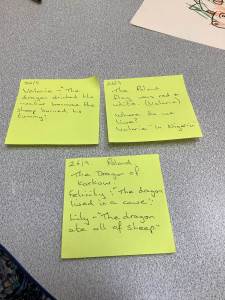 26/9
Valerie - "The
dragon drinked the
water because the
sheep burned his
tummy"
26/9
The Poland
flag was red &
white. (Valerie)
Where do we
live?
Valerie in Nigeria
26/9. Poland
The Dragon of
Krakow.
Felicity: "The dragon
lived in a cave".
Lily - "The dragon
ate all of sheep"